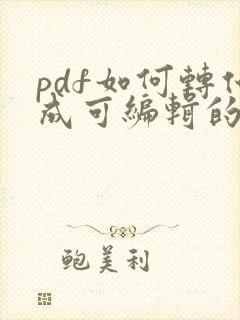 pdf如何轉
成可編輯的
鮑美利